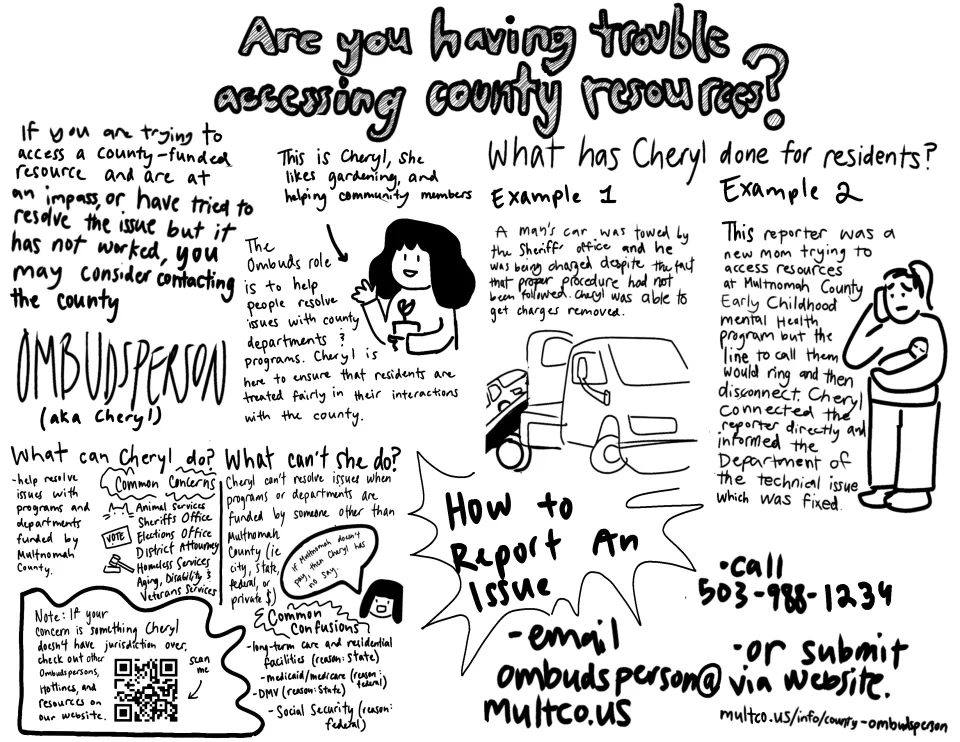 Are you having trouble
accessing county resources?
If you are trying to
access a county-funded
resource and are at
an impass, or have tried to
resolve the issue but it
has not worked, you
may consider contacting
the county
OMBUDSPERSON
(aka Cheryl)
This is Cheryl, she
likes gardening, and
helping community members
The
Ombuds role
is to help
people resolve
issues with county
departments &
programs. Cheryl is
here to ensure that residents are
treated fairly in their interactions
with the county.
What has Cheryl done for residents?
Example 1
A man's car was towed by
the Sheriffs office and he
was being charged despite the fact
that proper procedure had not
been followed. Cheryl was able to
get charges removed.
Example 2
This reporter was a
new mom trying to
access resources
at Multnomah County
Early Childhood
mental Health
program but the
line to call them
would ring and then
disconnect. Cheryl
connected the
reporter directly and
informed the
Department of
the technical issue
which was fixed.
What can Cheryl do?
-help resolve
issues with
programs and
departments
funded by
Multnomah
County.
Common Concerns
Animal Services
Sheriffs Office
VOTE
Elections Office
District Attourney
Homeless Services
Aging, Disability &
Veterans Services
What can't she do?
Cheryl can't resolve issues when
programs or departments are
funded by someone other than
Multnomah
County (ie
city, state,
federal, or
private $)
If Multnomah doesn't
pay, then Cheryl has
no say.
Common
Confusions
-long-term care and residential
facilities (reason: state)
-medicaid/medicare (reason:
federal)
-DMV (reason: State)
-Social Security (reason:
federal)
Note: If your
concern is something Cheryl
doesn't have jurisdiction over,
check out other
Ombudspersons,
Hotlines, and
resources on
our website.
scan
me
How to
Report An
Issue
-call
503-988-1234
-email
ombudsperson@
multco.us
-or submit
via website.
multco.us/info/county-ombudsperson